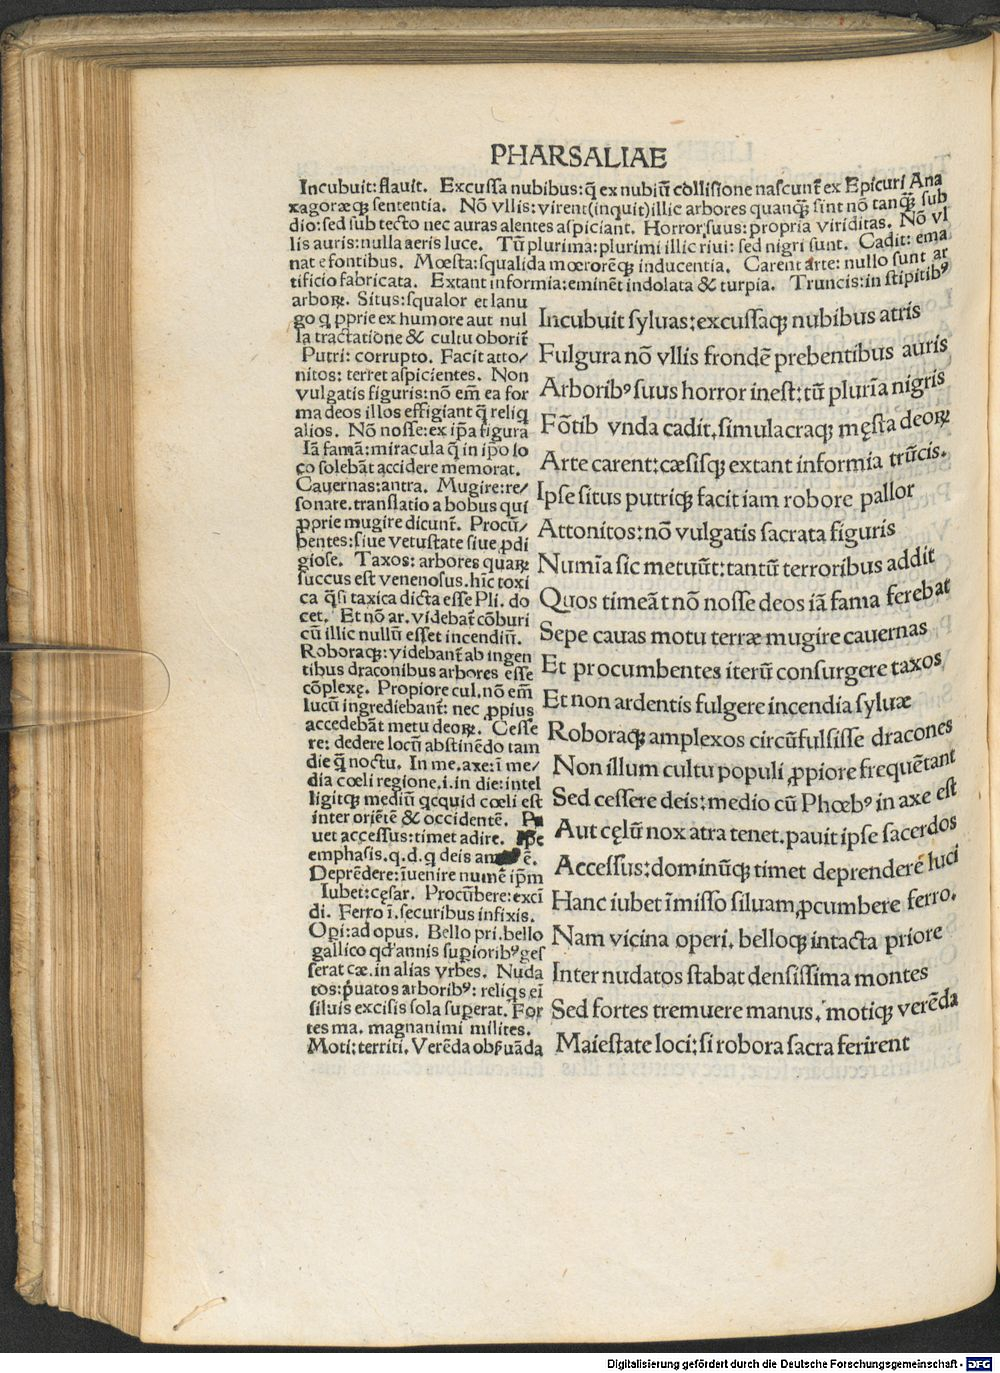 PHARSALIAE
Incubuit:flauit. Excussa nubibus:q̃ ex nubiũ collisione nascunt̃ ex Epicuri Ana
xagoræqꝫ sententia. Nõ vllis:virent(inquit)illic arbores quanqꝫ̃ sint nõ tanqꝫ̃ sub
dio:sed sub tecto nec auras alentes aspiciant. Horror;suus:propria viriditas. Nõ vl
lis auris:nulla aeris luce. Tũ plurima:plurimi illic riui: sed nigri sunt. Cadit: ema
nat e fontibus. Mœsta:squalida mœrorẽqꝫ inducentia. Carent arte: nullo sunt ar
tificio fabricata. Extant informia:eminẽt indolata & turpia. Truncis:in stipitibꝰ
arboꝝ. Situs:squalor et lanu
go q ꝓprie ex humore aut nul
la tractatione & cultu oborit̃
Putri: corrupto. Facit atto/
nitos: terret aspicientes. Non
vulgatis figuris:nõ em̃ ea for
ma deos illos effigiant q̃ reliq
alios. Nõ nosse:ex ip̃a figura
Iã famã:miracula q̃ in ipo lo
co solebãt accidere memorat.
Cauernas:antra. Mugire:re/
sonare.translatio a bobus qui
ꝓprie mugire dicunt̃. Procũ/
bentes:siue vetustate siue ꝓdi
giose. Taxos: arbores quaꝝ
succus est venenosus.hĩc toxi
ca q̃si taxica dicta esse Pli. do
cet. Et nõ ar.videbat̃ cõburi
cũ illic nullũ esset incendiũ.
Roboraqꝫ:videbant̃ ab ingen
tibus draconibus arbores esse
cõplexę. Propiore cul.nõ em̃
lucũ ingrediebant̃: nec ꝓpius
accedebãt metu deoꝝ. Cesse
re: dedere locũ abstinẽdo tam
die q̃ noctu. In me.axe:ĩ me/
dia cœli regione.i.in die:intel
ligitqꝫ mediũ qcquid cœli est
inter oriẽtẽ & occidentẽ. Pa
uet accessus:timet adire. Ipse
emphasis.q.d.q deis ẽ.
Deprẽdere:ĩuenire numẽ ip̃m
Iubet:cęsar. Procũbere:excĩ
di. Ferro ĩ.securibus infixis.
Opi:ad opus. Bello pri.bello
gallico qd'annis supioribꝰges
serat cæ.in alias vrbes. Nuda
tos:p̃uatos arboribꝰ: reliqs eĩ
siluis excisis sola superat. For
tes ma. magnanimi milites.
Moti:territi. Verẽda obp̃uãda
Incubuit syluas:excussaqꝫ nubibus atris
Fulgura nõ vllis frondẽ prebentibus auris
Arboribꝰsuus horror inest:tũ plurĩa nigris
Fõtib vnda cadit.simulacraqꝫ męsta deoꝝ
Arte carent:cæsisqꝫ extant informia trũcis.
Ipse situs putriqꝫ facit iam robore pallor
Attonitos:nõ vulgatis sacrata figuris
Numĩa sic metuũt:tantũ terroribus addit
Quos timeãt nõ nosse deos iã fama ferebat
Sepe cauas motu terræ mugire cauernas
Et procumbentes iterũ consurgere taxos
Et non ardentis fulgere incendia syluæ
Roboraqꝫ amplexos circũfulsisse dracones
Non illum cultu populi ꝓpiore frequẽtant
Sed cessere deis:medio cũ Phœbꝰ in axe est
Aut cęlũ nox atra tenet.pauit ipse sacerdos
Accessus:dominũqꝫ timet deprendere luci
Hanc iubet ĩmisso siluam ꝓcumbere ferro.
Nam vicina operi. belloqꝫ intacta priore
Inter nudatos stabat densissima montes
Sed fortes tremuere manus. motiqꝫ verẽda
Maiestate loci:si robora sacra ferirent
Digitalisierung gefördert durch die Deutsche Forschungsgemeinschaft - DFG